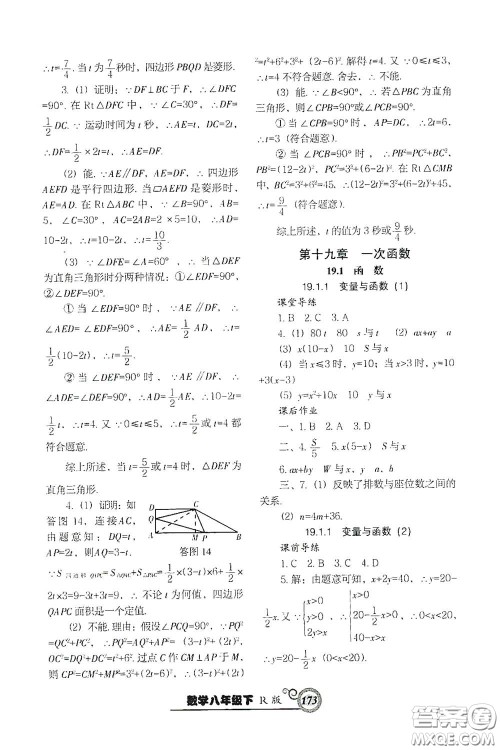 ∴t=7/4. 当 t 为 7/4 秒时，四边形 PBQD 是菱形.
3. (1) 证明：∵ DF⊥BC 于 F，∴∠DFC
=90°. 在 Rt△DFC 中，∵∠C=30°，∴DF=
1/2 DC. ∵ 运动时间为 t 秒，∴AE=t，DC=2t.
∴DF=1/2×2t=t. ∴AE=DF.
(2) 能. ∵ AE∥DF，AE=DF，∴ 四边形
AEFD 是平行四边形. 当□AEFD 是菱形时，
AE=AD. 在 Rt△ABC 中，∵∠B=90°，AB=
5，∠C=30°，∴AC=2AB=2×5=10，∴AD=
10-2t，∴t=10-2t，∴t=10/3.
(3) ∵∠DFE=∠AEF<90°，∴当△DEF
为直角三角形时分两种情况：①∠EDF=90°；
②∠DEF=90°.
①当∠EDF=90°时，∵AE∥DF，∴
∠AED=∠EDF=90°，∴AE=1/2 AD，∴t=
1/2(10-2t)，∴t=5/2.
②当∠DEF=90°时，∵AE∥DF，∴
∠ADE=∠DEF=90°，∴AD=1/2 AE，∴10-2t=
1/2 t，∴t=4. 又∵0≤t≤5，∴t=5/2或 t=4 都
符合题意.
综上所述，当 t=5/2或 t=4 时，△DEF 为
直角三角形.
4. (1) 证明：如
答图 14，连接AC，
由题意知：DQ=t，
AP=2t，则AQ=3-t.
D C Q A M P B
答图 14
∵S四边形QAPC=S△AQC+S△PAC=1/2×(3-t)×6+1/2×
2t×3=9-3t+3t=9，∴不论 t 为何值，四边形
QAPC 面积是一个定值.
(2) 不能.理由；假设∠PCQ=90°. ∵PQ²
=QC²+PC²，∴PQ²=AQ²+AP²=(3-t)²+(2t)²，
QC²=DQ²+DC²=t²+6². 过点 C 作 CM⊥AP 于 M.
则 PC²=CM²+PM²=3²+(2t-6)²，∴(3-t)²+(2t)²
=t²+6²+3²+(2t-6)². 解得 t=4. 又∵0≤t≤3，
∴t=4 不符合题意. 舍去，∴不能.
(3) 能. ∵∠B<90°，∴若△PBC为直角
三角形，则∠CPB=90°或∠PCB=90°.
①当∠CPB=90°时，AP=DC，∴2t=6，
∴t=3 (符合题意).
②当∠PCB=90°时，∴PB²=PC²+BC²，
PB²=(12-2t)²，PC²=(2t-6)²+3². 在Rt△CMB
中，BC²=3²+6²=45，∴(12-2t)²=(2t-6)²+3²+45，
∴t=9/4 (符合题意).
综上所述，t的值为 3 秒或 9/4 秒.
第十九章 一次函数
19.1 函 数
19.1.1 变量与函数 (1)
课堂导练
1. B 2. C 3. D
4. (1) 80t 80 s与t (2) ax+ay a
(3) x(10-x) 10 S与x
(4) 当x≤3时，y=10；当x>3时，y=10
+3(x-3)
(5) y=x²+10x x与y
课后作业
一、1. B 2. C 3. B
二、4. S/5 5. x(5-x) S与x
6. ax+by W与x，y a，b
三、7. (1) 反映了排数与座位数之间的
关系.
(2) n=4m+36.
19.1.1 变量与函数 (2)
课前导练
1. C 2. B 3. D 4. C
5. 解：由题意可知，x+2y=40，∴y=20-
1/2 x. 又∵{x>0 y>0 2y>x，∴{x>0 20-1/2 x>0，∴0<x<20.
∴y=20-1/2 x (0<x<20).
数学八年级下 R 版 173
答案圈
MXQE.COM